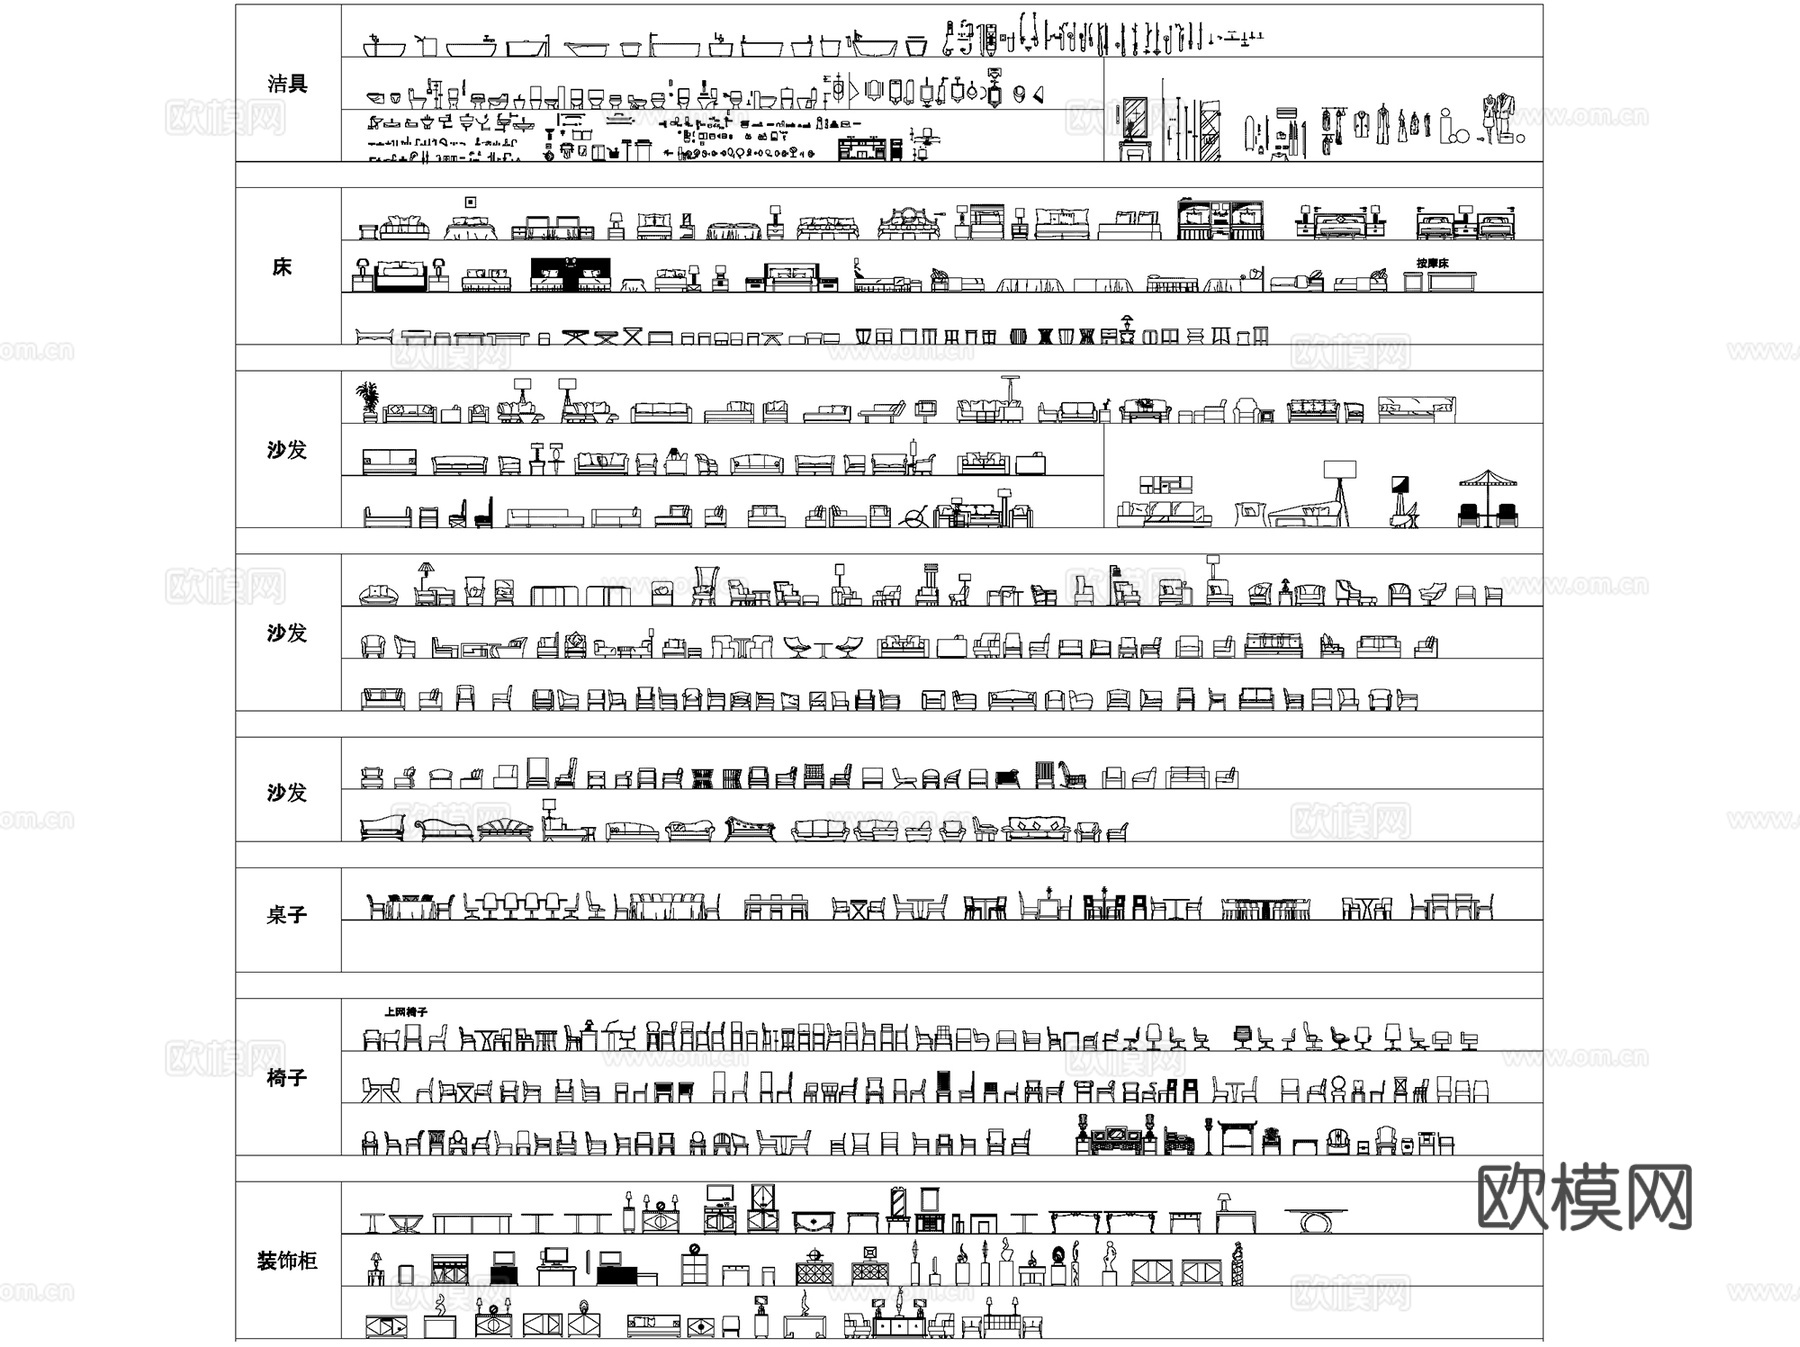 洁具
床
按摩床
沙发
沙发
沙发
桌子
上网椅子
椅子
装饰柜
欧模网
欧模网
www.om.cn